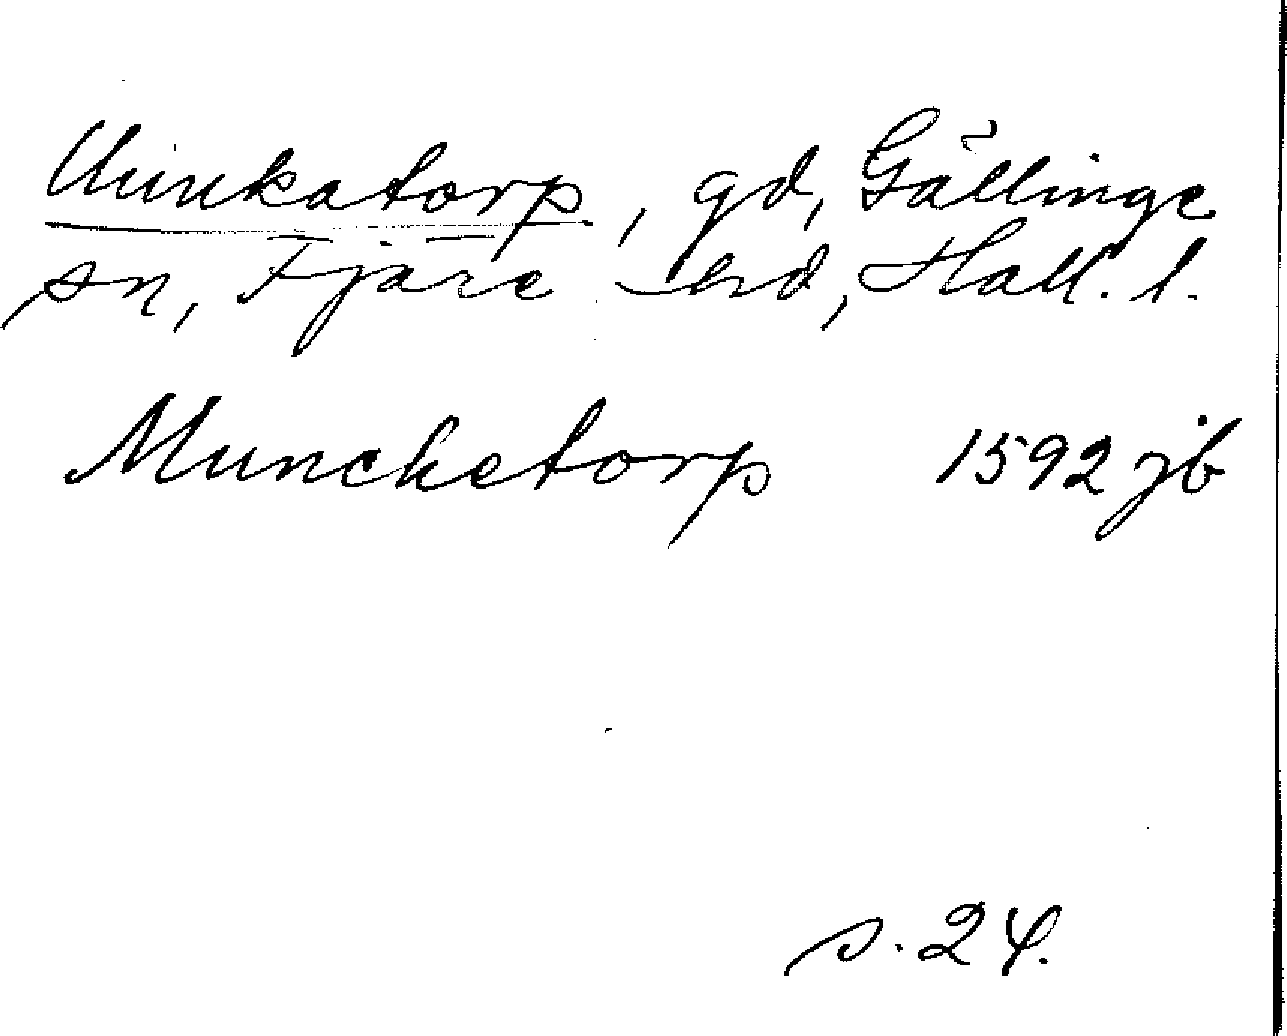 Munkatorp, gd, Gällinge
sn, Fjäre hd, Hall. l.
Munchetorp 1592 jb
s. 24.